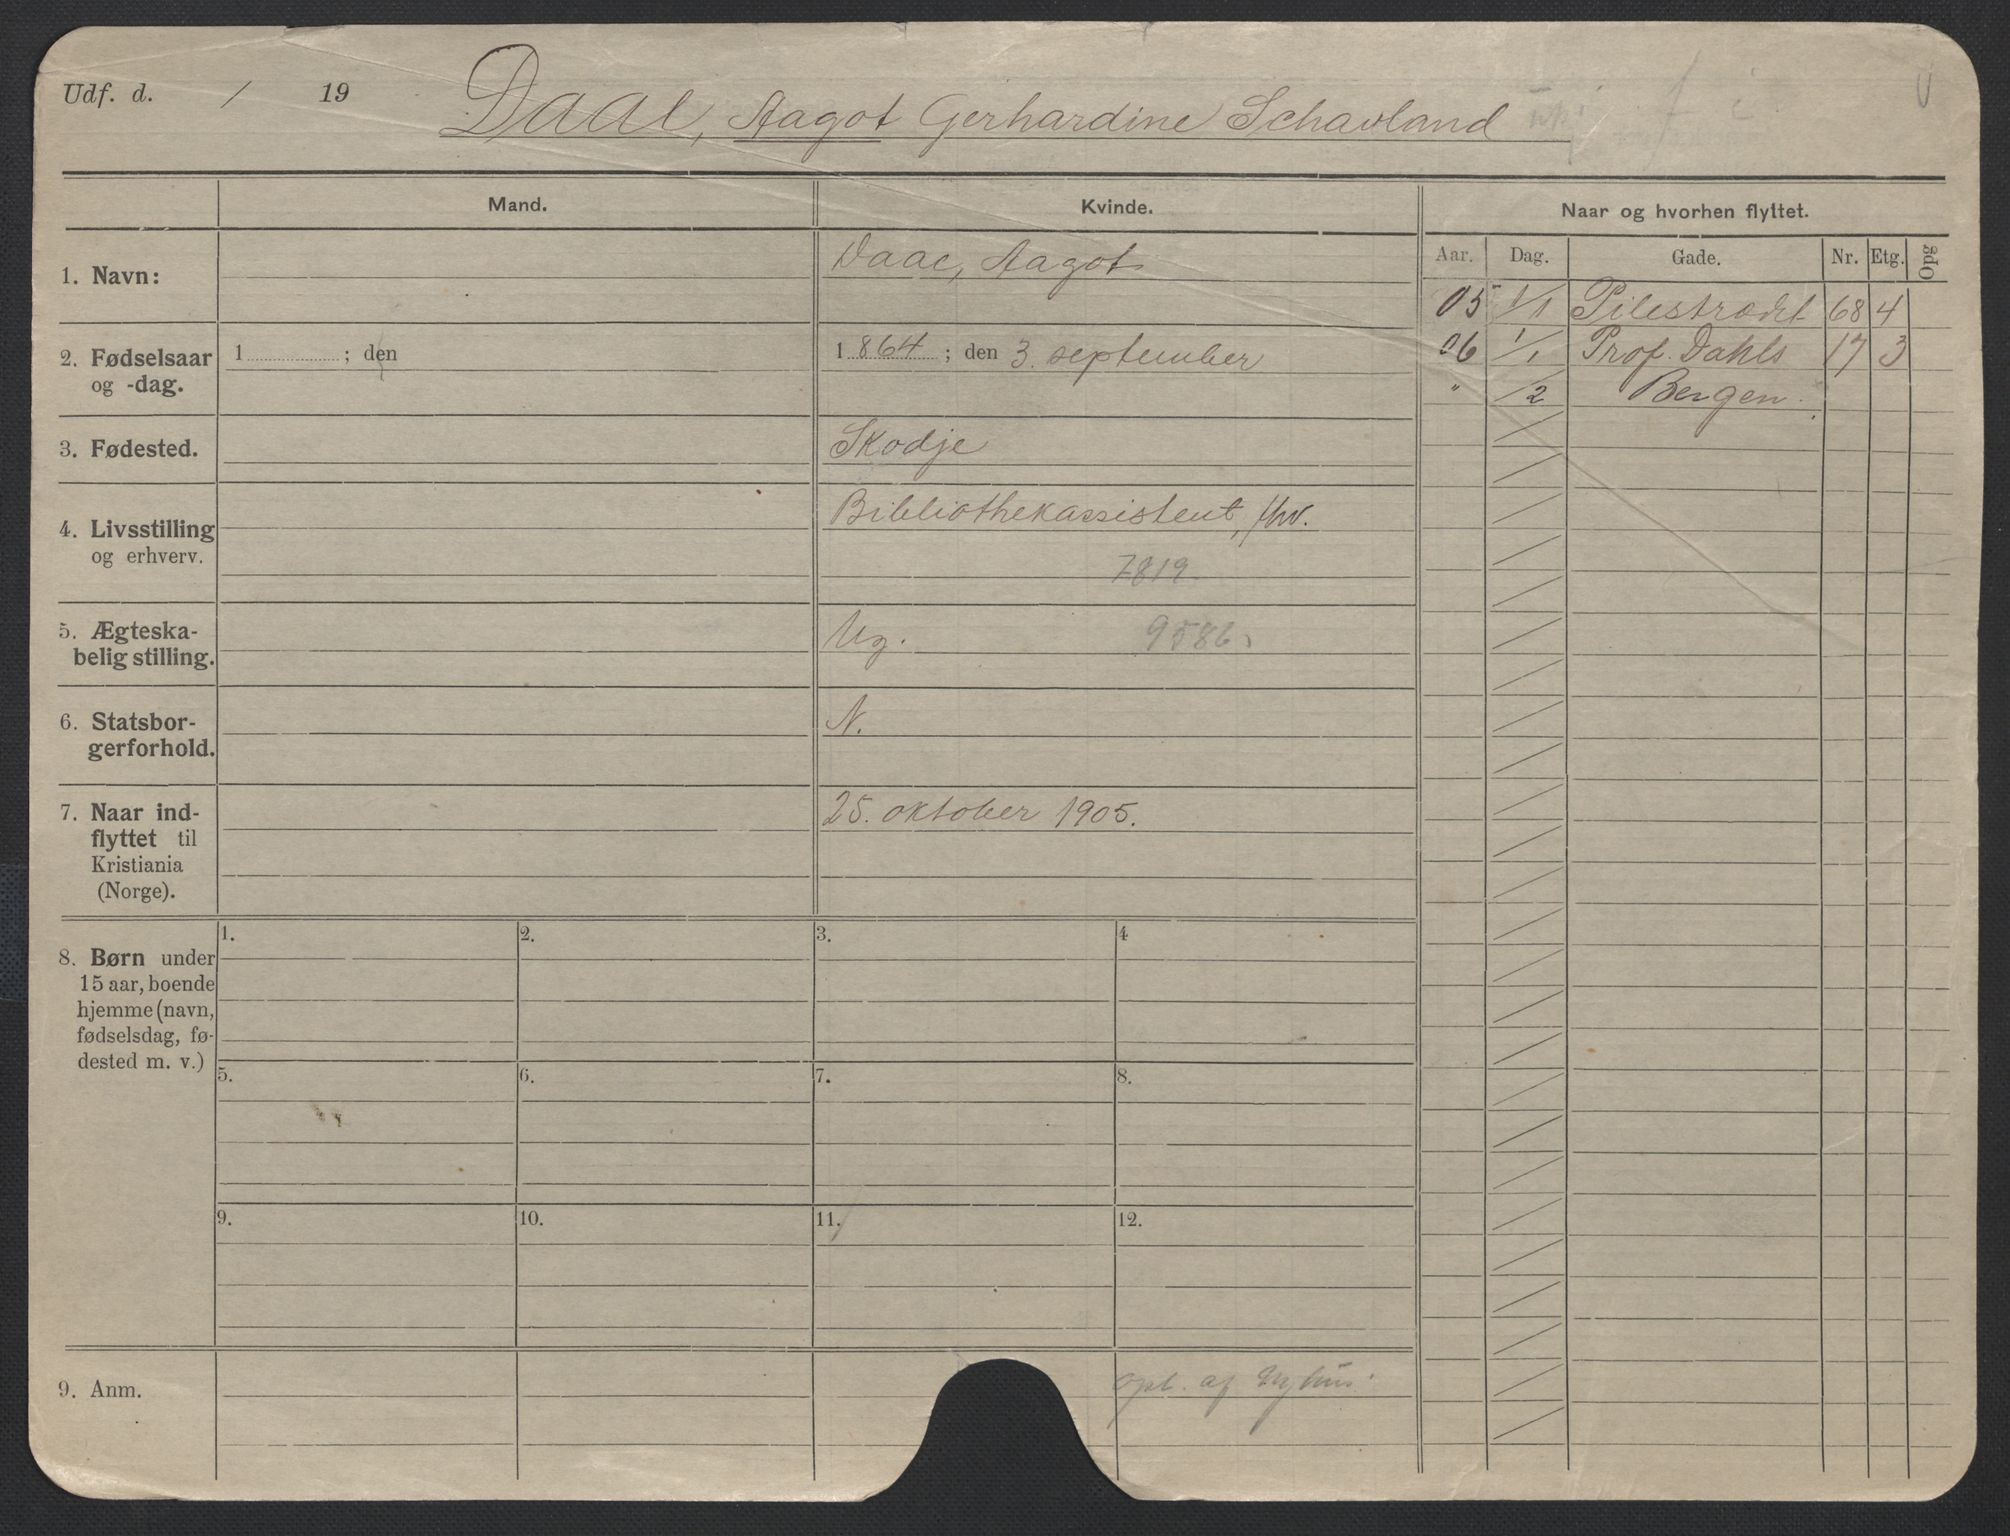 Udf. d. / 19 Daae, Aagot Gerhardine Schavland
Mand. Kvinde. Naar og hvorhen flyttet.
Aar. Dag. Gade. Nr. Etg. Opg
1. Navn: Daae, Aagot
05 1/1 Pilestrædet 68 4
2. Fødselsaar 1 ; den 1 864 ; den 3. september
og -dag.
06 1/1 Prof. Dahls 17 3
" /2 Bergen.
3. Fødested. Skodje
4. Livsstilling Bibliothekassistent, /hv.
og erhverv. 7819.
5. Ægteska- Ug. 9586.
belig stilling.
6. Statsbor- N.
gerforhold.
7. Naar ind- 25. oktober 1905.
flyttet til
Kristiania
(Norge).
8. Børn under
15 aar, boende
hjemme (navn,
fødselsdag, fø-
dested m. v.)
1. 2. 3. 4
5. 6. 7. 8.
9. 10. 11. 12.
9. Anm. opl. af